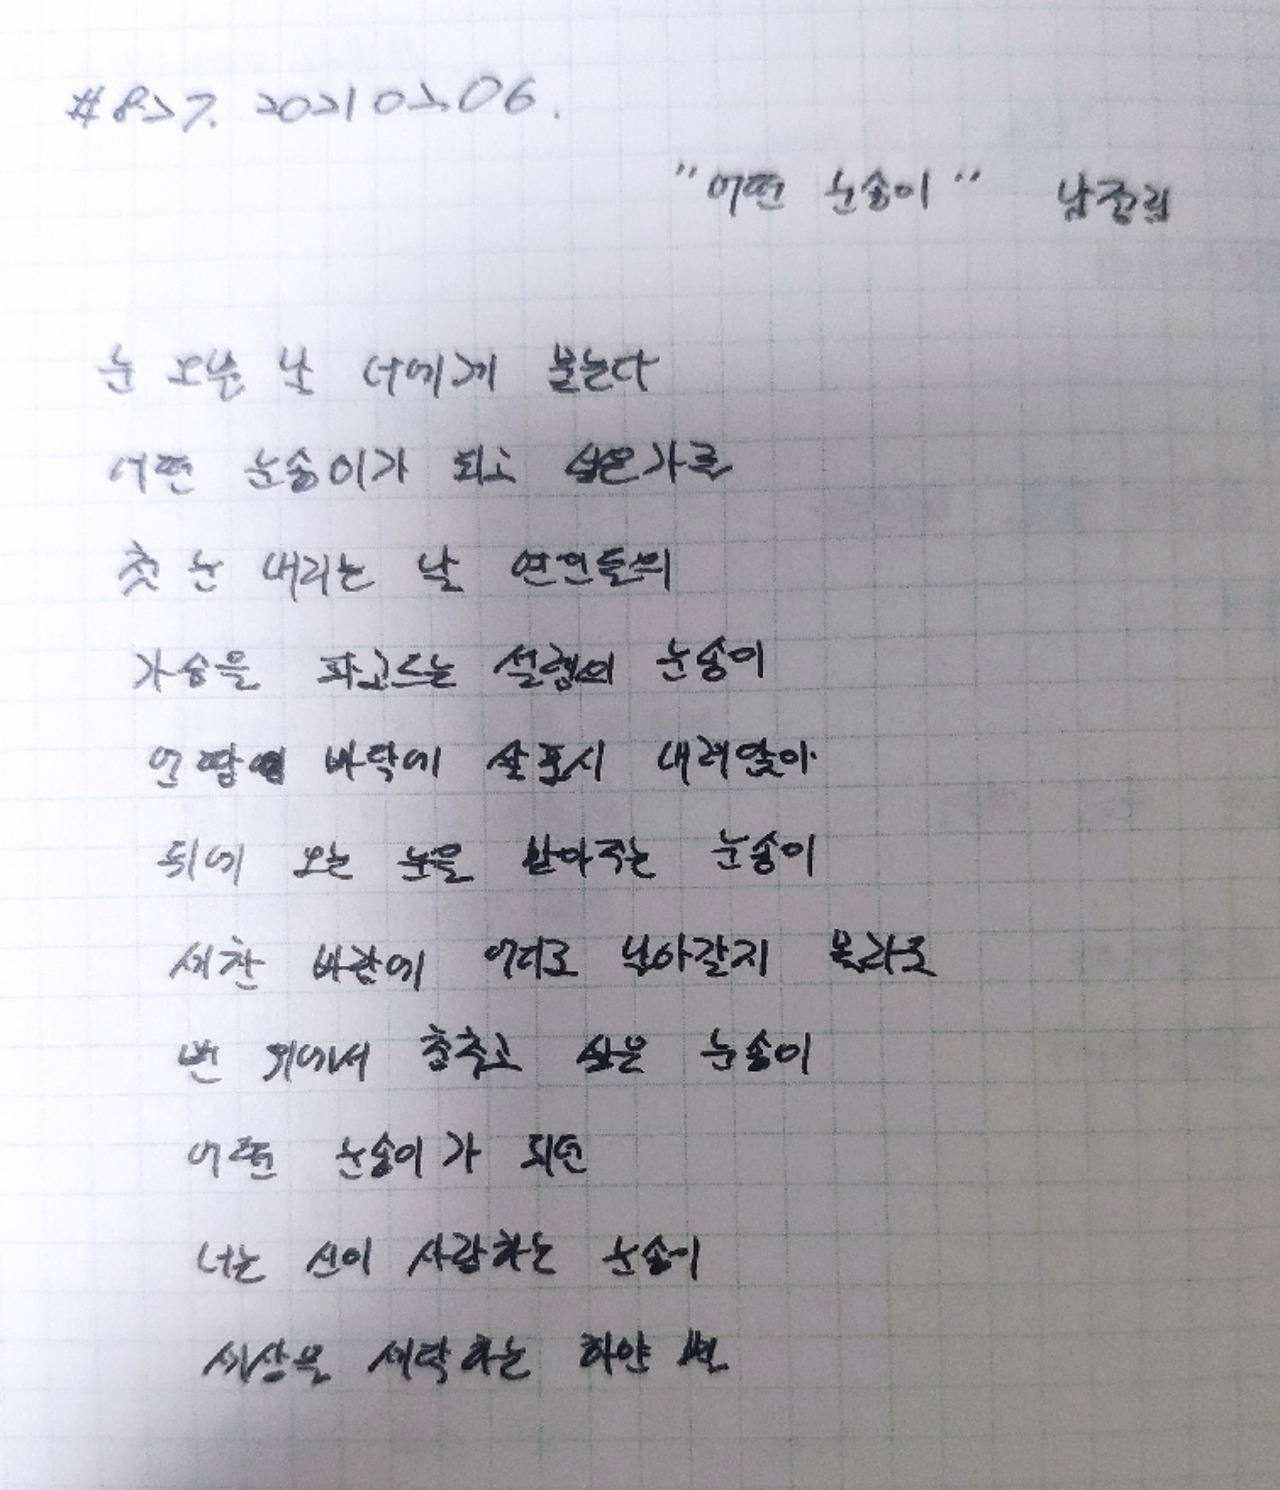 #827. 20210206.
"어떤 눈송이" 남정림
눈 오는 날 너에게 묻는다
어떤 눈송이가 되고 싶은가를
첫 눈 내리는 날 연인들의
가슴을 파고드는 설렘의 눈송이
언 땅 바닥에 살포시 내려앉아
뒤에 오는 눈을 받아주는 눈송이
세찬 바람에 어디로 날아갈지 몰라도
번 위에서 춤추고 싶은 눈송이
어떤 눈송이가 되던
너는 신이 사랑하는 눈송이
세상을 세탁하는 하얀 별